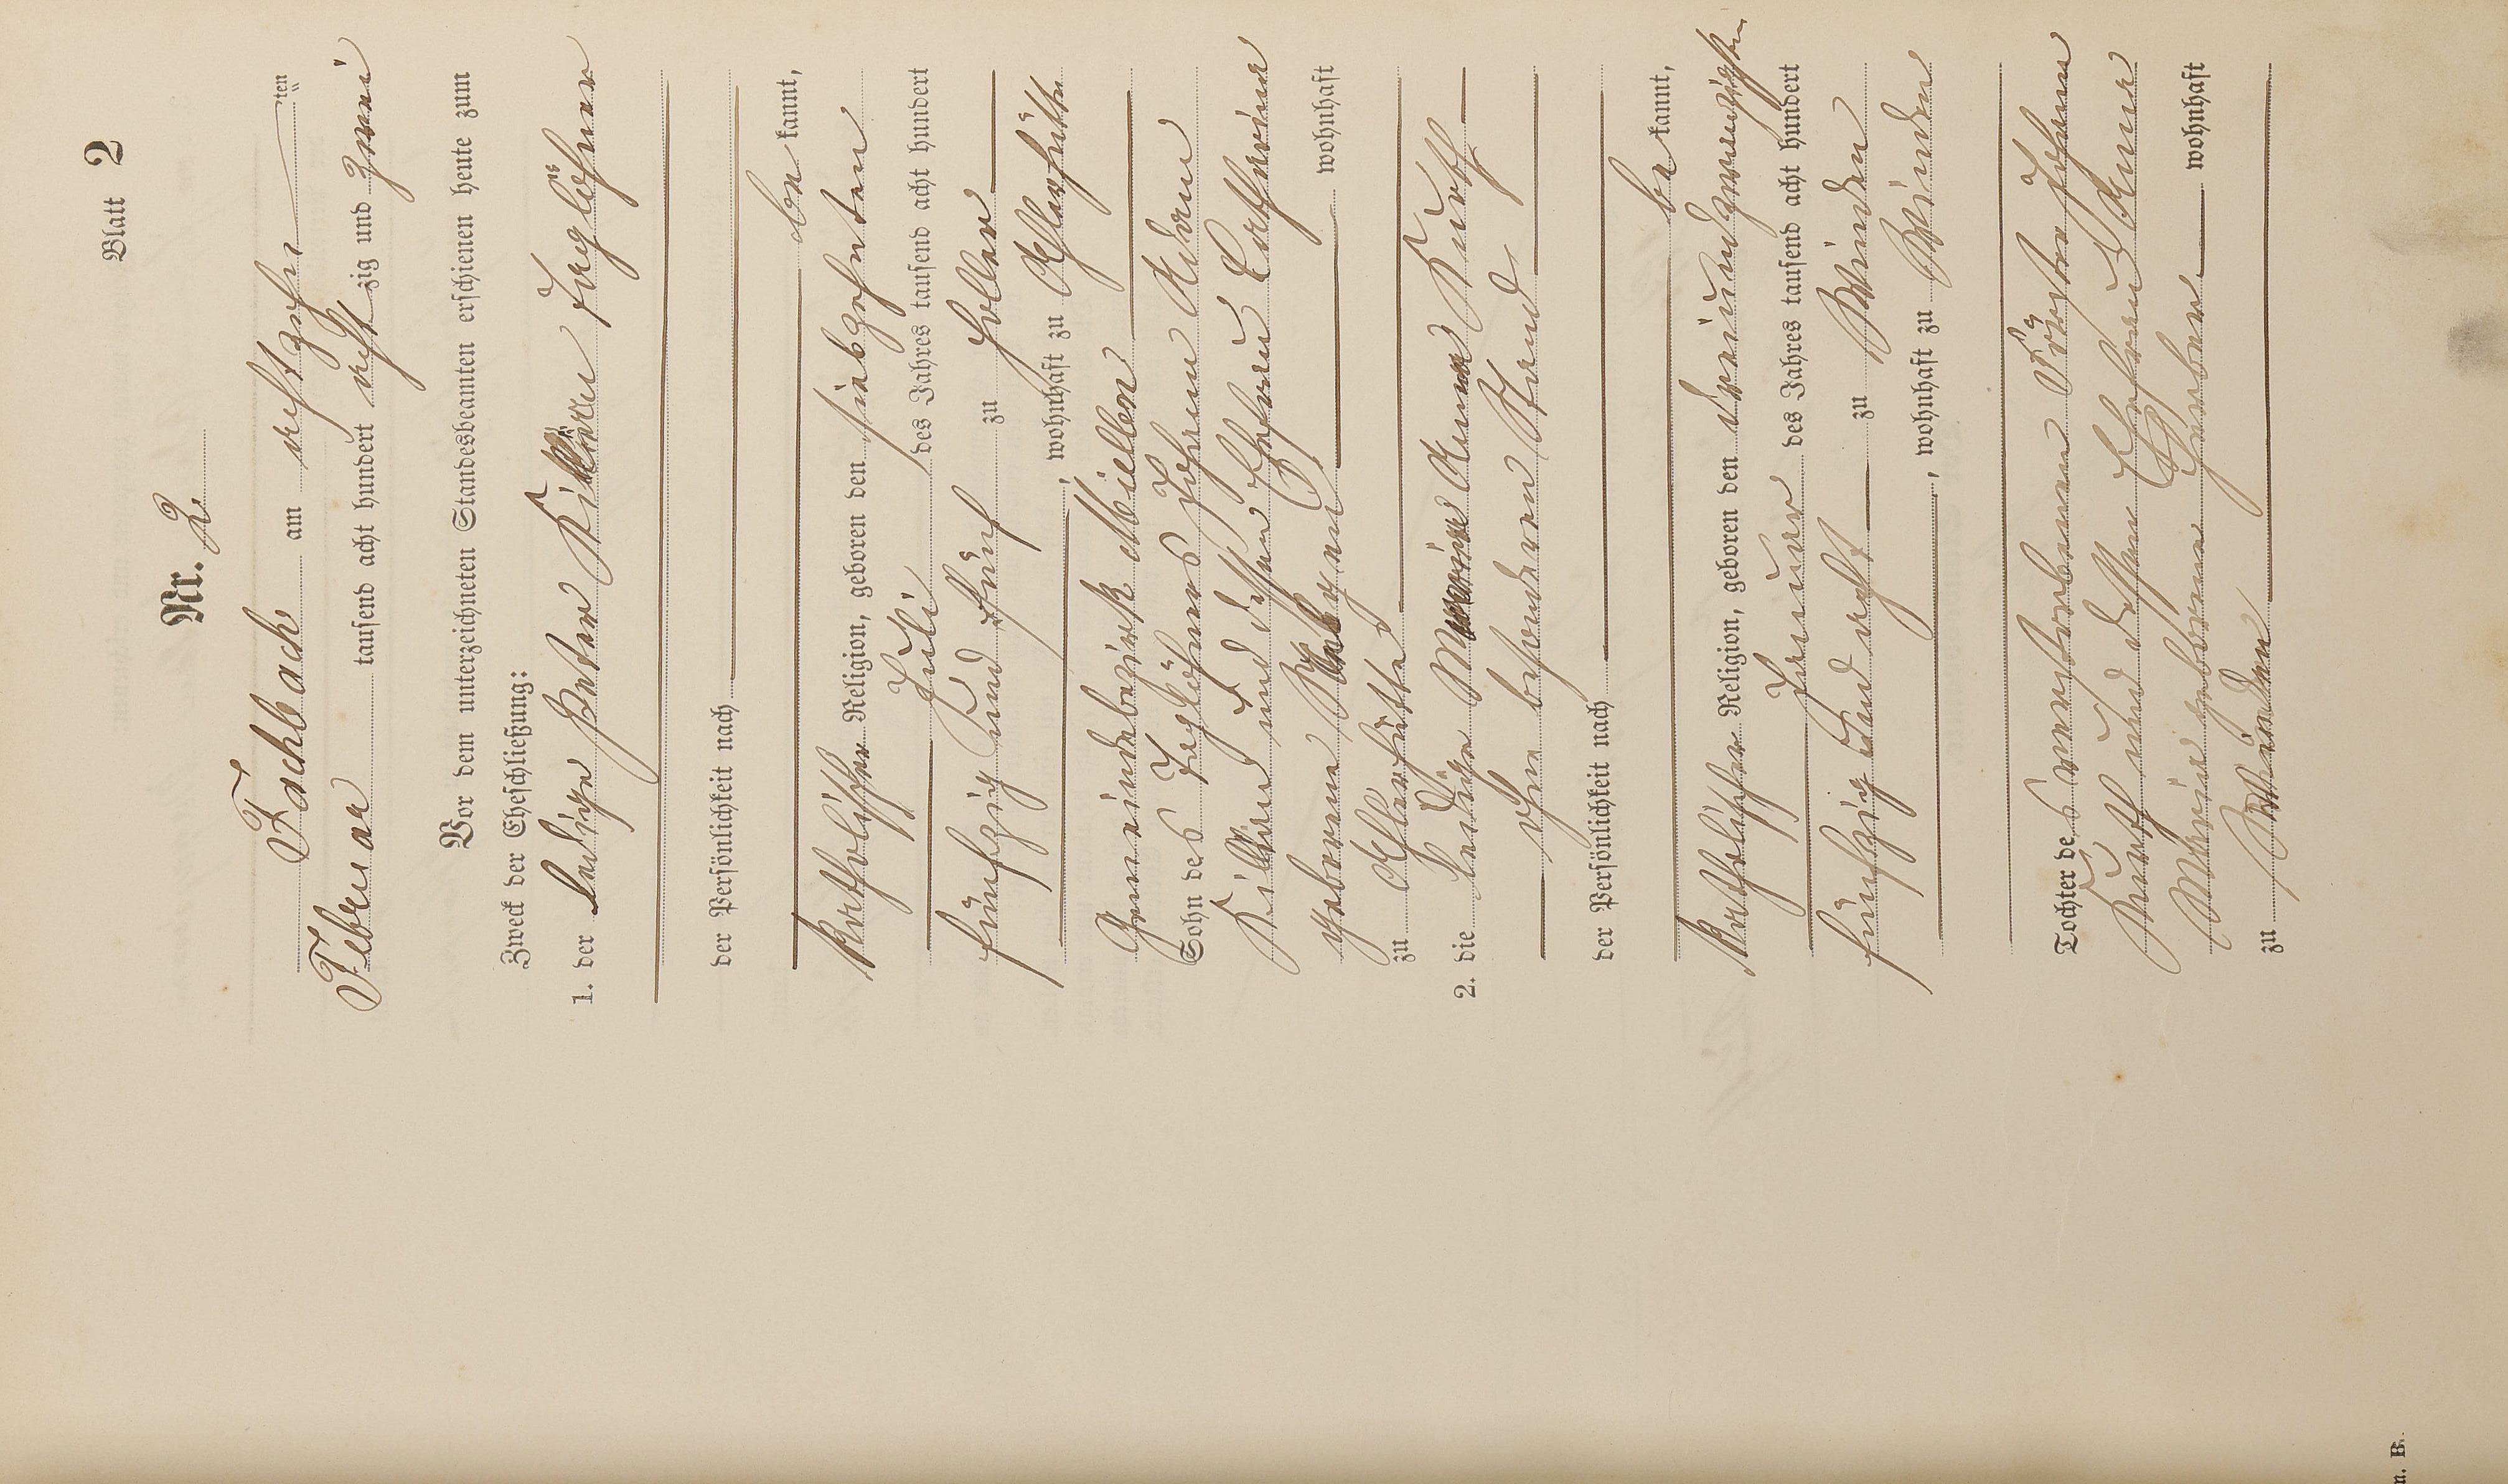 Blatt 2
Nr. 2.
Fachbach am achtzehn ten
Februar tausend acht hundert achtzig und zwei
Vor dem unterzeichneten Standesbeamten erschienen heute zum
Zweck der Eheschließung:
1. der ledige Peter Taglöhner
der Persönlichkeit nach
be kannt,
katholischer Religion, geboren den siebzehnten
Juli des Jahres tausend acht hundert
fünfzig und fünf zu Holler
, wohnhaft zu Ahlerhütte
Gemeindebezirk Miellen
Sohn des Taglöhners Johann Adam
und dessen Ehefrau Catharina
geborene wohnhaft
zu Ahlerhütte
2. die ledige Maria Anna Kurth
ohne besonderen Stand
der Persönlichkeit nach
be kannt,
katholischer Religion, geboren den dreiundzwanzigsten
Januar des Jahres tausend acht hundert
fünfzig und acht zu Winden
, wohnhaft zu Winden
Tochter des verstorbenen Johann
Kurth und dessen Ehefrau Anna
Maria geborene wohnhaft
zu Winden
n. B.